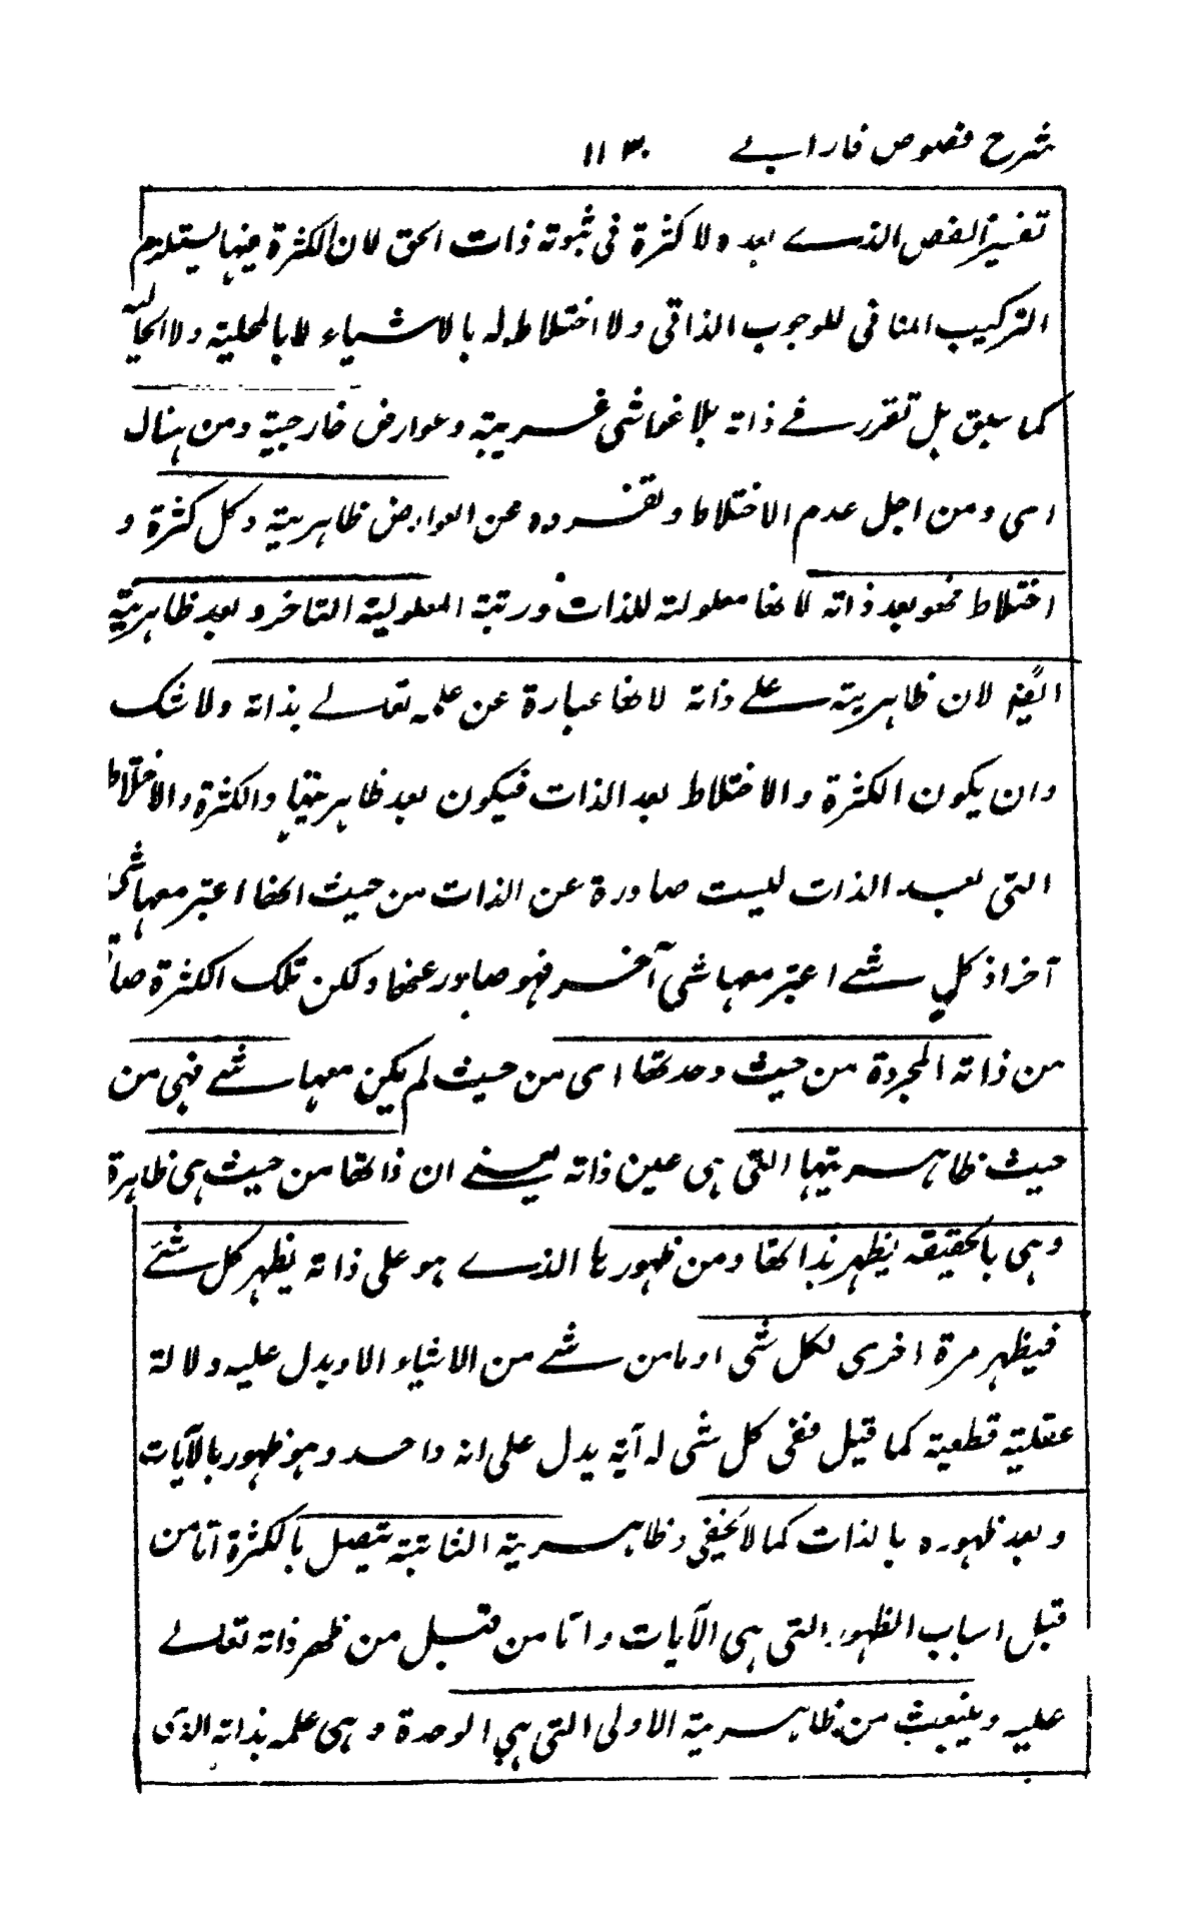 شرح فصوص فارابے ١١٣
تفسير الفص الذے بعد ولا كثرة فى ثبوته ذات الحق لان الكثرة فيها يستلزم
التركيب المنافى للوجوب الذاتى ولا اختلاط له بالاشياء لا بالمحلية ولا الحالية
كما سبق بل تقرر فے ذاته بلا غواشى غريبة وعوارض خارجية ومن هنالك
اى ومن اجل عدم الاختلاط وتفرده عن العوارض ظاهرية وكل كثرة و
اختلاط فهو بعد ذاته لانها معلولة للذات ورتبة المعلولية التاخر و بعد ظاهرية
ايضا لان ظاهرية علے ذاته لانها عبارة عن علمه تعالے بذاته ولا شك
وان يكون الكثرة والاختلاط بعد الذات فيكون بعد ظاهريتها والكثرة والاختلاط
التى بعد الذات ليست صادرة عن الذات من حيث انها اعتبر معها شى
آخر اذ كل شے اعتبر معها شى آخر فهو صادر عنها ولكن تلك الكثرة
من ذاته المجردة من حيث وحدتها اى من حيث لم يكن معها شے فهى من
حيث ظاهريتها التى هى عين ذاته يعنے ان ذاتها من حيث هى ظاهرة
وهى بالحقيقه يظهر بذاتها ومن ظهورها الذے هو على ذاته يظهر كل شے
فيظهر مرة اخرى لكل شى او ما من شے من الاشياء الا ويدل عليه دلالة
عقلية قطعية كما قيل ففى كل شى له آية يدل على انه واحد وهو ظهور بالآيات
وبعد ظهوره بالذات كما لا يخفى وظاهرية الثانية يتصل بالكثرة اما من
قبل اسباب الظهور التى هى الآيات واما من قبل من ظهر ذاته تعالے
عليه وينبعث من ظاهرية الاولى التى هى الوحدة وهى علمه بذاته الذى